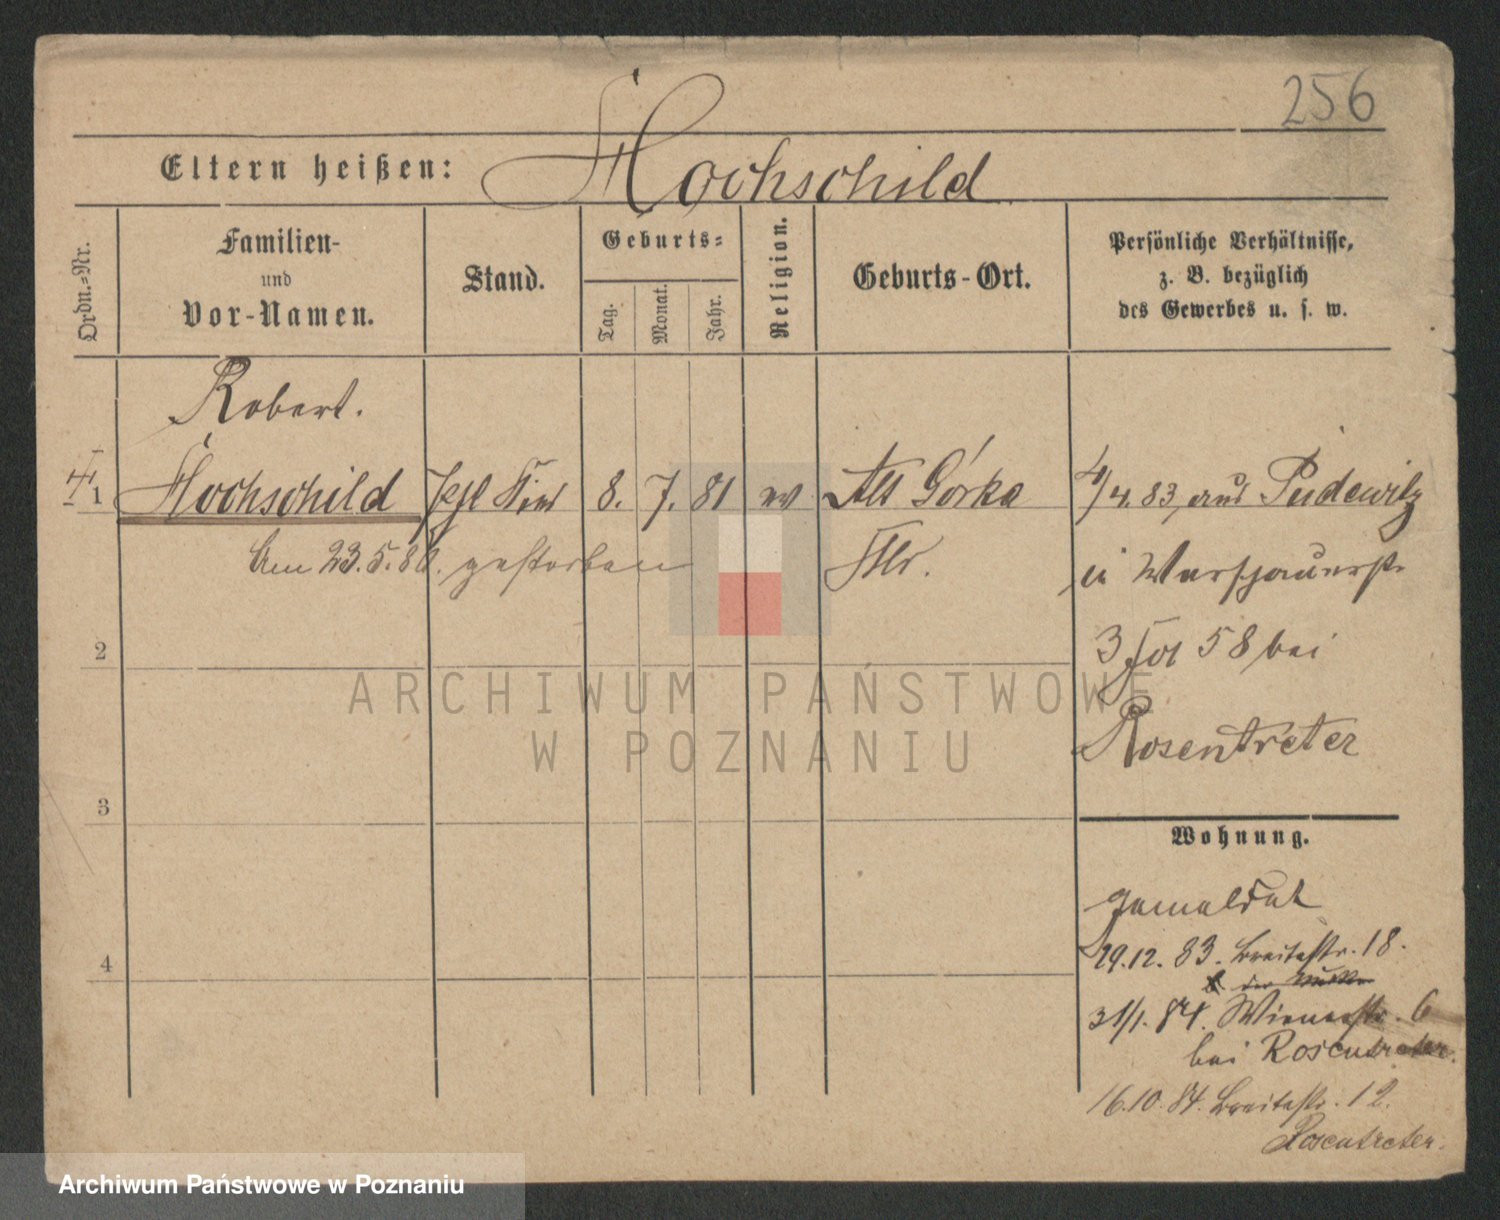 256
Eltern heißen: Hochschild
Ordn.-Nr.
Familien-
und
Vor-Namen.
Stand.
Geburts-
Tag.
Monat.
Jahr.
Religion.
Geburts-Ort.
Persönliche Verhältnisse,
z. B. bezüglich
des Gewerbes u. s. w.
Robert.
1 Hochschild 8. 7. 81 ev Alt Górka 4/4. 83, aus Pudewitz
Am 23.5.86. gestorben
in Warschauerstr
3 58 bei
2
Rosentreter
ARCHIWUM PAŃSTWOWE
W POZNANIU
3
Wohnung.
gemeldet
29.12. 83. Breitestr. 18.
4
31/1. 84. Wienerstr. 6
bei Rosentreter.
16.10. 84. Breitestr. 12.
Rosentreter.
Archiwum Państwowe w Poznaniu